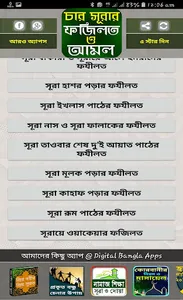 চার সূরার
ফজিলত
ও
আমল
আরও অ্যাপস
৫ স্টার দিন
সূরা হাশর পড়ার ফযীলত
সূরা ইখলাস পাঠের ফযীলত
সূরা নাস ও সূরা ফালাকের ফযীলত
সূরা তাওবার শেষ দু'ই আয়াত পাঠের ফযীলত
সূরা মূলক পড়ার ফযীলত
সূরা কাহাফ পড়ার ফযীলত
সূরা রূম পাঠের ফযীলত
সূরা ওয়াকেয়ার ফযিলত
আমাদের কিছু অ্যাপ @ Digital Bangla Apps
প্রকৃত বন্ধু
চেনার উপায়
নামাজ শিক্ষা
সূরা ও দোয়া
কোরবানীর